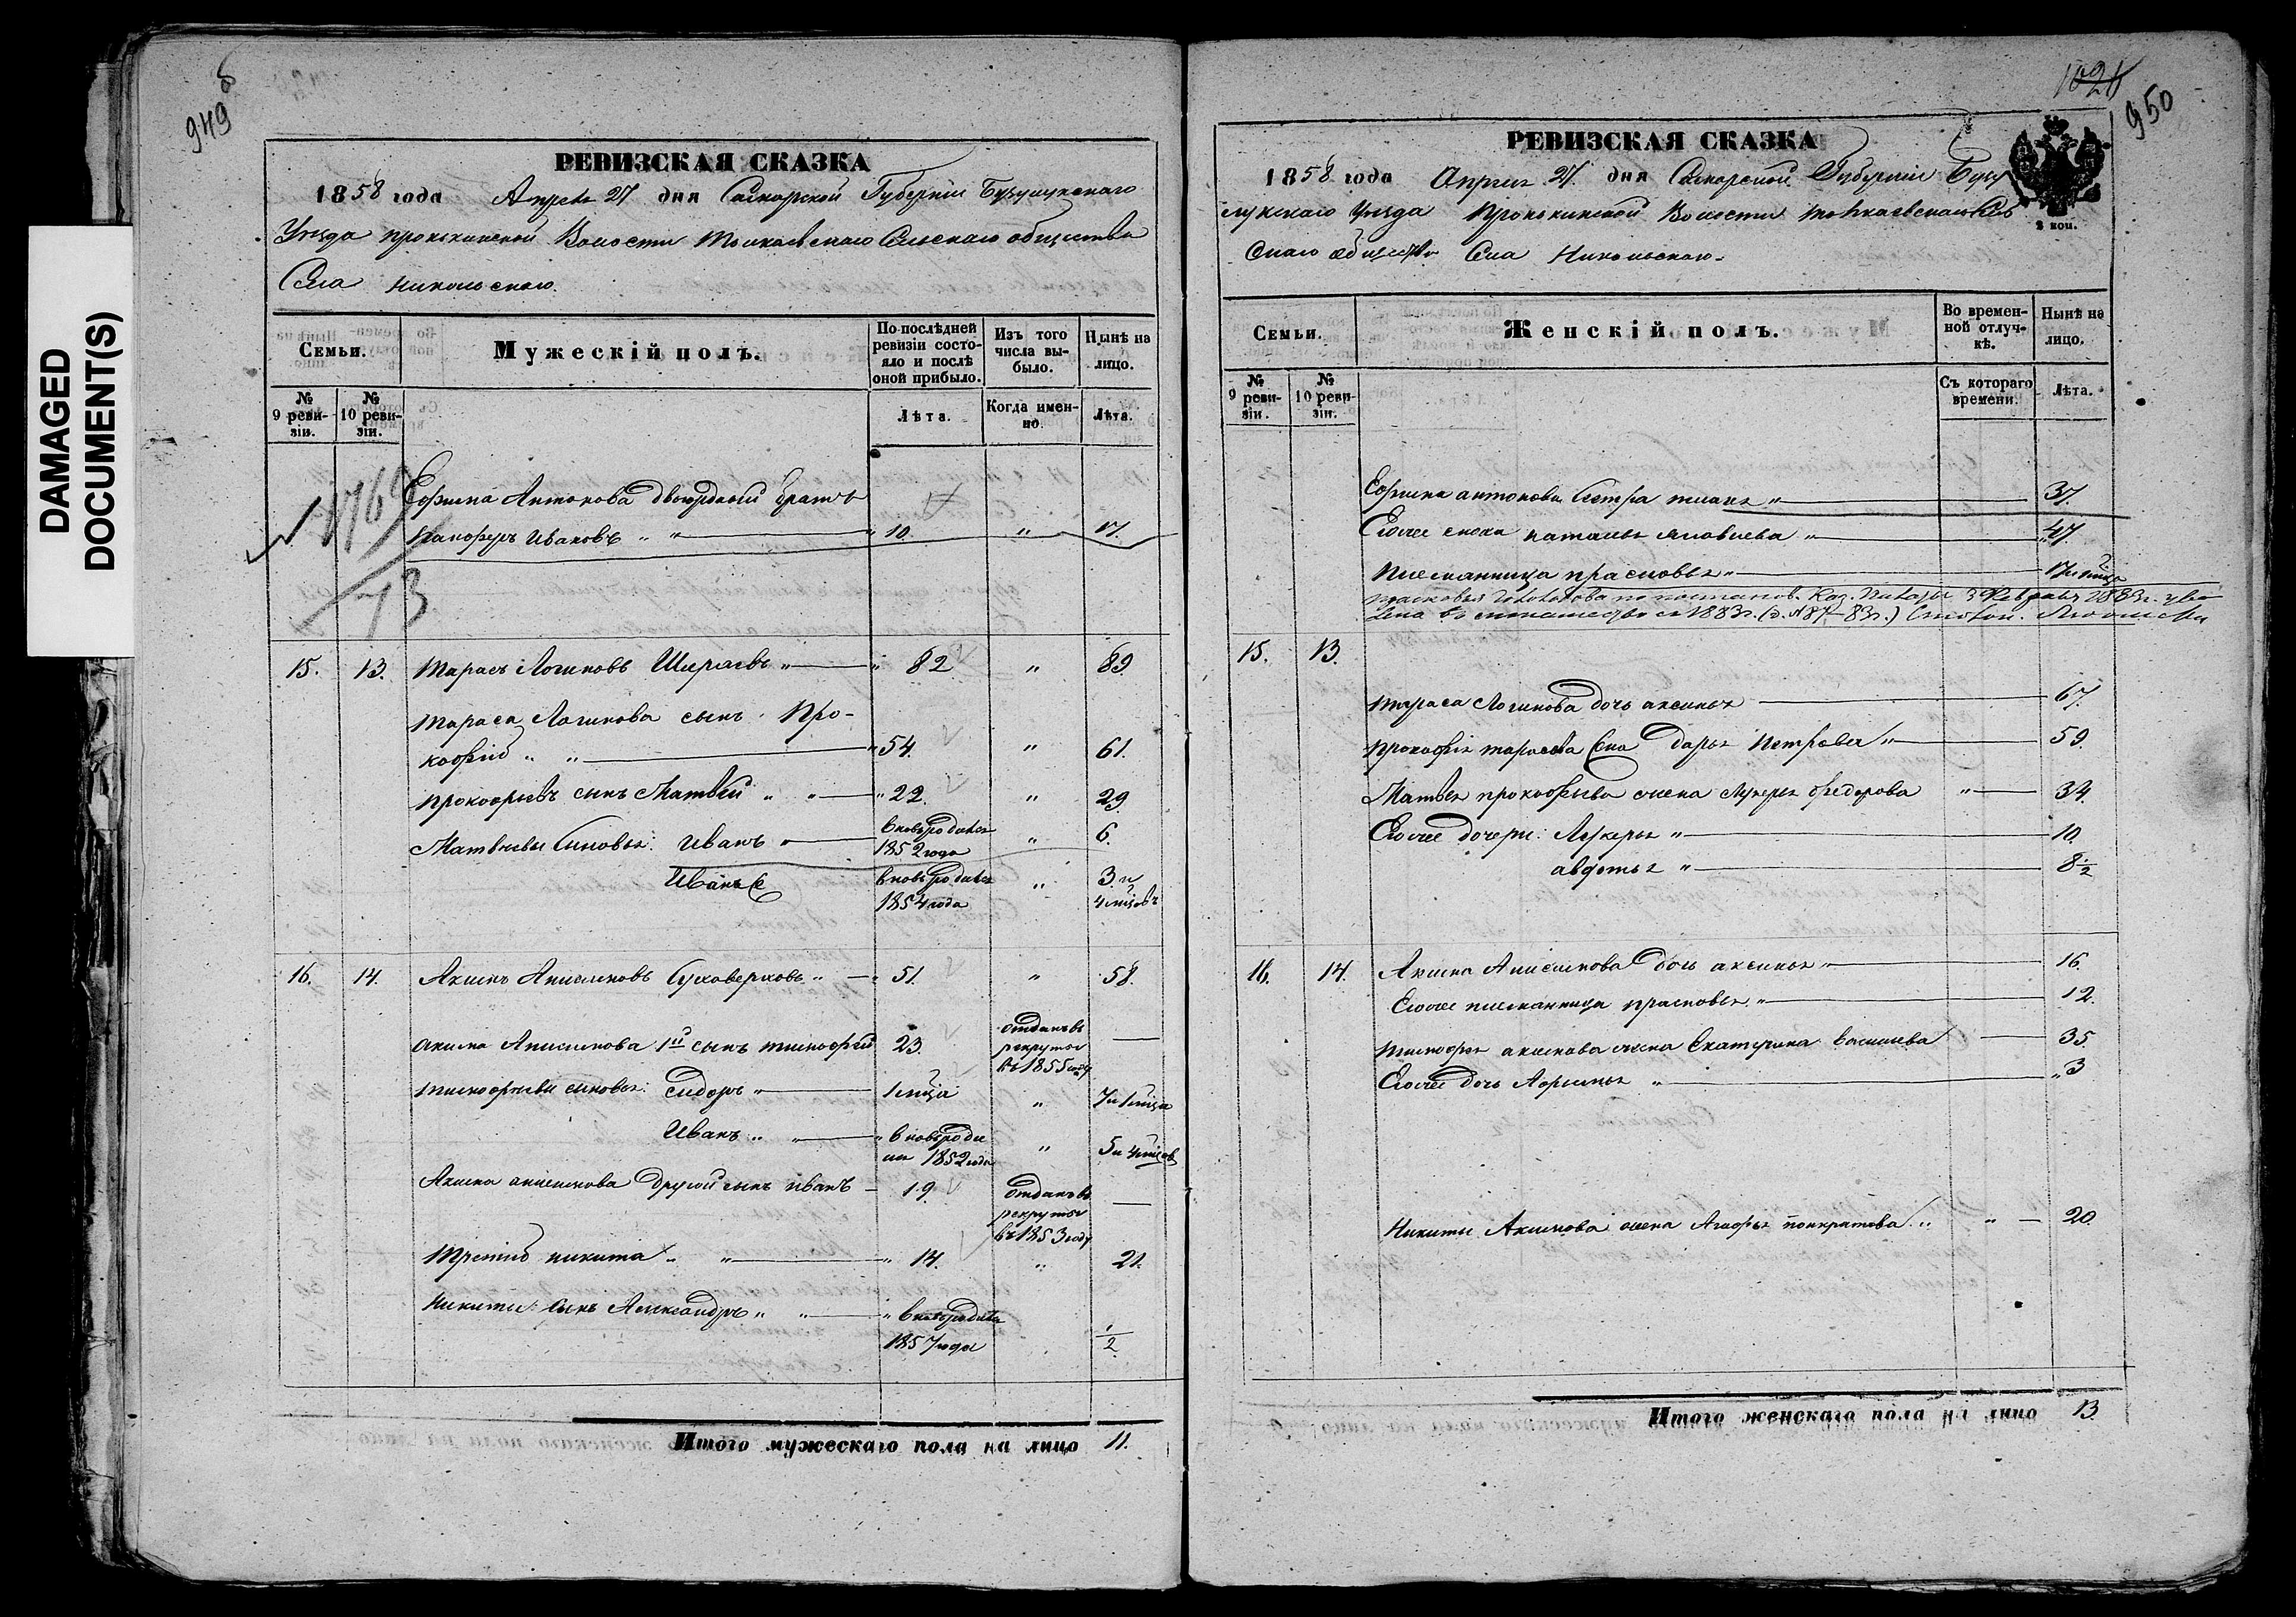 DAMAGED
DOCUMENT(S)
949
РЕВИЗСКАЯ СКАЗКА
1858 года Апреля 27 дня Самарской Губерніи Бузулукскаго
Уезда Пронькинской Волости Толкаевскаго Сельскаго общества
Села Никольскаго.
Семьи.
Мужескій полъ.
По послѣдней ревизіи состояло и послѣ оной прибыло.
Изъ того числа выбыло.
Нынѣ на лицо.
№ 9 ревизіи.
№ 10 ревизіи.
Лѣта.
Когда именно.
Лѣта.
Ефима Антонова двоюродный братъ
Никифоръ Ивановъ " " " 10. " 17.
73
15. 13. Тарасъ Логиновъ Ширяевъ " " 82 " 89.
Тараса Логинова сынъ Про-
кофій " " " 54. " 61.
Прокофьевъ сынъ Матвей " " " 22. " 29
Матвѣевы сыновья: Иванъ " вновь родился 1852 года " 6.
Иванъ вновь родился 1854 года " 3 и 4 мцовъ
16. 14. Акимъ Анисимовъ Суховерховъ " " 51. " 58.
Акима Анисимова 1й сынъ Тимофей 23. отданъ въ рекруты въ 1855 году —
Тимофеевы сыновья: Сидоръ " 1 мца " 7 и 1 мца
Иванъ " " " вновь роди
ся 1852 года " 5 и 4 мцов
Акима Анисимова другой сынъ Иванъ — 19 отданъ въ рекруты въ 1853 году —
Третій Никита " " " 14. " 21.
Никиты сынъ Александръ " " " вновь родился
1857 года 1/2
Итого мужескаго пола на лицо 11.
950
РЕВИЗСКАЯ СКАЗКА
1858 года Апреля 27. дня Самарской Губерніи Бузу
лукскаго Уезда Пронькинской Волости Толкаевскаго Сель
скаго общества Села Никольскаго.
2 коп.
Семьи.
Женскій полъ.
Во временной отлучкѣ.
Нынѣ на лицо.
№ 9 ревизіи.
№ 10 ревизіи.
Съ котораго времени.
Лѣта.
Ефима Антонова сестра " 37.
Егоже сноха Наталья " 47.
Племянница Прасковья " 17
15. 13.
Тараса Логинова дочь Аксинья 67.
Прокофія Тарасова жена Дарья Петрова " 59.
Матвея Прокофьева жена Лукерья Федорова " 34.
Егоже дочери: Лукерья " 10.
Авдотья " 8 1/2
16. 14. Акима Анисимова дочь Аксинья " 16.
Егоже племянница Прасковья " 12.
Тимофея Акимова жена Екатерина Васильева 35.
Егоже дочь Афимья " " 3
Никиты Акимова жена Агафья Понкратова " " 20.
Итого женскаго пола на лицо 13.